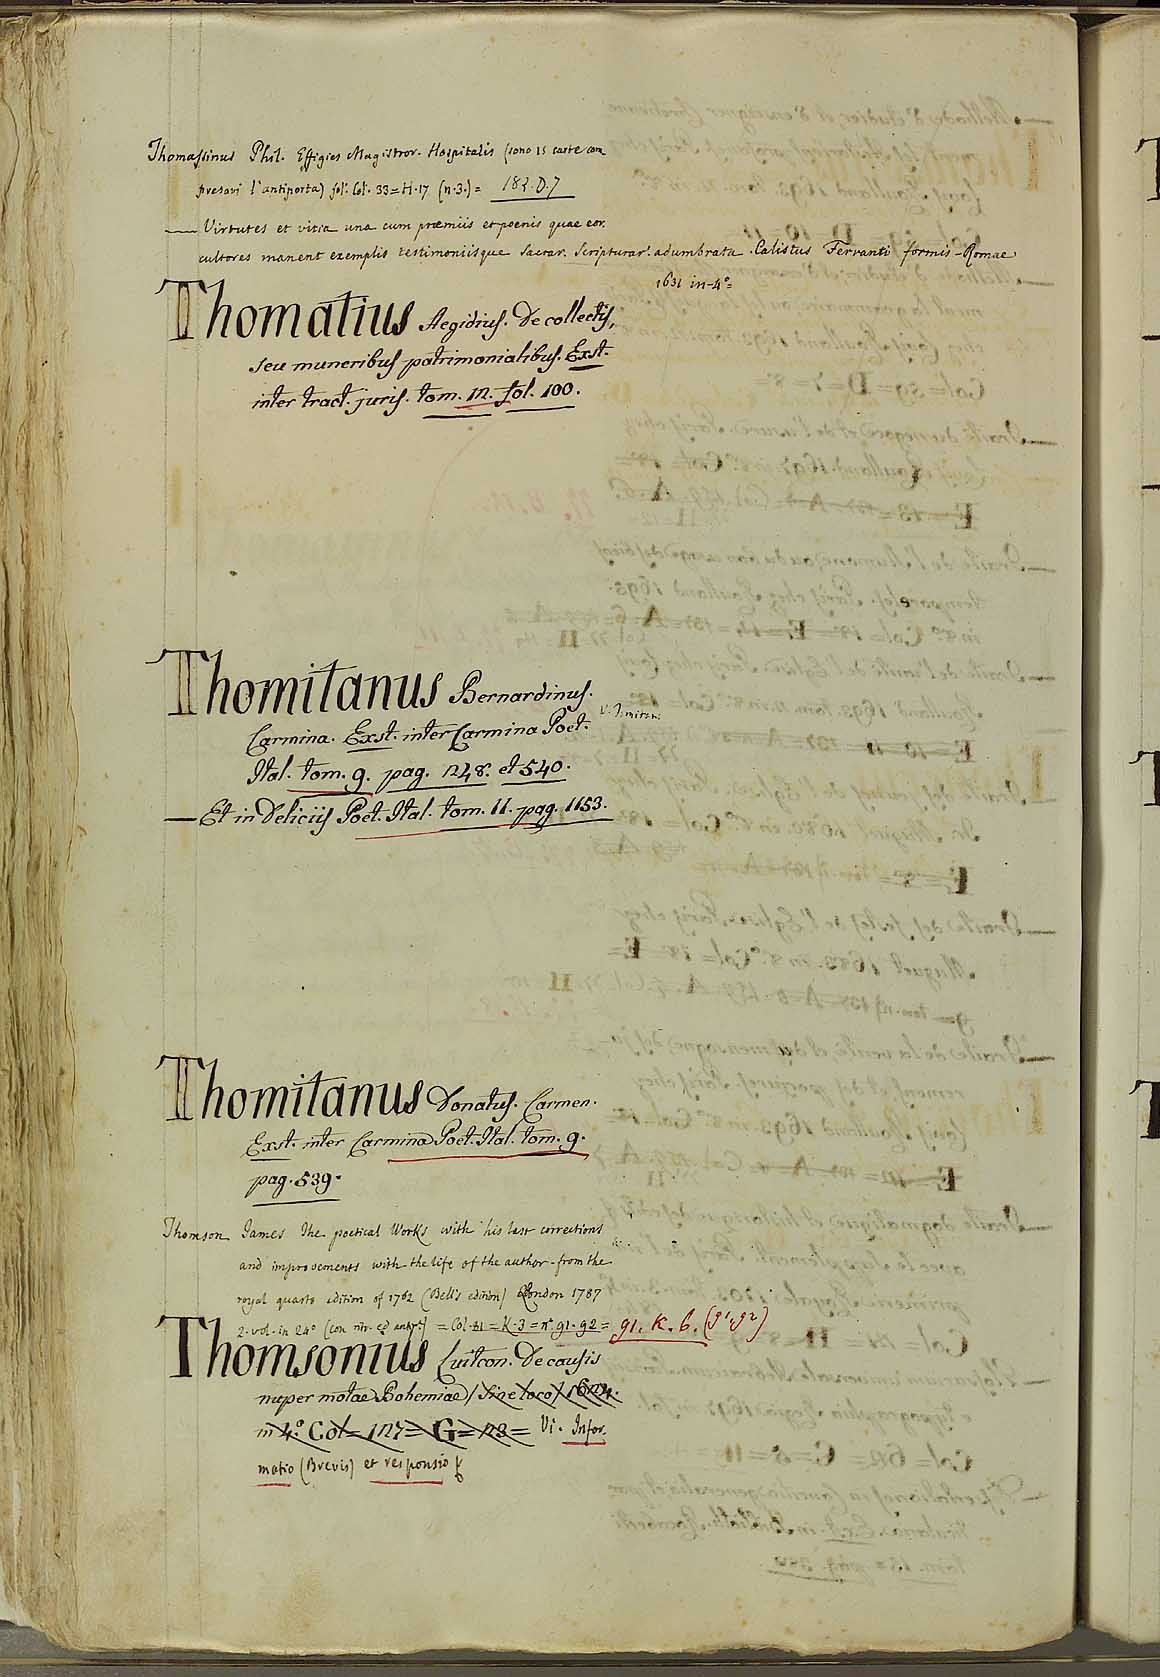 Thomassinus Phil. Effigies Magistror. Hospitalis (sono 15 carte com
presavi l'antiporta) fol. Col. 33 = H. 17 (n. 3.) = 182. D. 7
— Virtutes et vitia una cum præmiis et poenis quae eor.
cultores manent exemplis testimoniisque Sacrar. Scripturar. adumbrata. Calistus Ferranti formis Romae
1631 in-4° =
Thomatius Aegidius. De collectis,
seu muneribus patrimonialibus. Exst.
inter tract. juris. tom. 12. fol. 100.
Thomitanus Bernardinus.
Carmina. Exst. inter Carmina Poet.
Ital. tom. 9. pag. 1248. et 540.
— Et in Deliciis Poet. Ital. tom. 11. pag. 1153.
Thomitanus Donatus. Carmen.
Exst. inter Carmina Poet. Ital. tom. 9.
pag. 539.
Thomson James The poetical Works with his last corrections
and improvements with the life of the author - from the
royal quarto edition of 1762 (Bell's edition) London 1787
2. vol. in 24° (con ritr. ed antip.) = Col. 81 = K. 3 = n° 91. 92 = 91. K. 6. (91, 92)
Thomsonius Luitcon. De causis
nuper motae Bohemiae / Sine loco / 1624.
in 4.° Col = 127 = G = 128 = Vi. Infor
matio (Brevis) et responsio